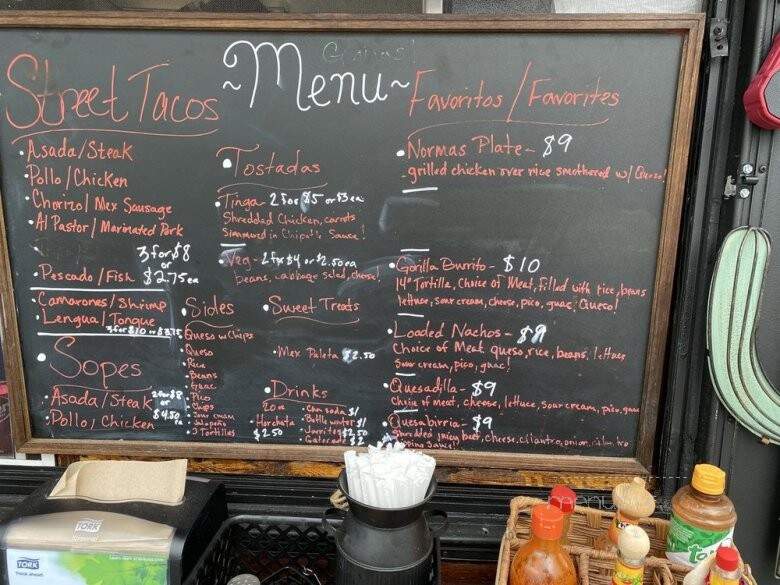 ~Menu~
Street Tacos
• Asada/Steak
• Pollo/Chicken
• Chorizo/Mex Sausage
• Al Pastor/Marinated Pork
3 for $8
or
• Pescado/Fish $2.75 ea
• Camarones/Shrimp
• Lengua/Tongue
3 for $10 or $3.75
• Sopes
• Asada/Steak
2 for $8
or
• Pollo/Chicken
$4.50 ea
• Tostadas
• Tinga - 2 for $5 or $3 ea
Shredded Chicken, carrots
Simmured in Chipotle Sauce!
• Veg - 2 for $4 or $2.50 ea
beans, cabbage salad, cheese!
• Sides
• Queso w/Chips
• Queso
• Rice
• Beans
• Guac
• Pico
• Chips
• Sour cream
• Jalapeño
• 3 Tortillas
• Sweet Treats
• Mex Paleta $2.50
• Drinks
20oz
Horchata
$2.50
• Can soda $1
• Bottle water $1
• Jarritos $2.50
• Gatorade $2
Favoritos/Favorites
• Normas Plate - $9
- grilled chicken over rice smothered w/ Queso!
• Gorilla Burrito - $10
14" Tortilla, Choice of Meat, filled with rice, beans
lettuce, sour cream, cheese, pico, guac, Queso!
• Loaded Nachos - $9
Choice of Meat queso, rice, beans, lettuce
Sour cream, pico, guac!
• Quesadilla - $9
Choice of meat, cheese, lettuce, sour cream, pico, guac
• Quesabirria - $9
Shredded juicy beef, cheese, cilantro, onion,
TORK
TORK
Think ahead.